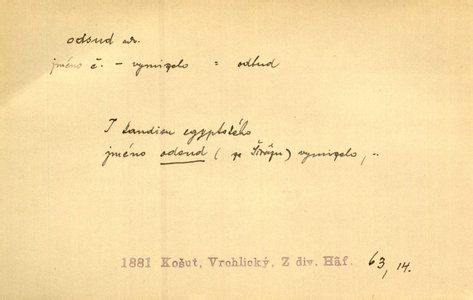 odsud adv.
jméno č. – vymizelo = odtud
I tandieu egyptského
jméno odsud (ze Šírázu) vymizelo, ..
1881 Košut, Vrchlický, Z div. Háf. 63, 14.